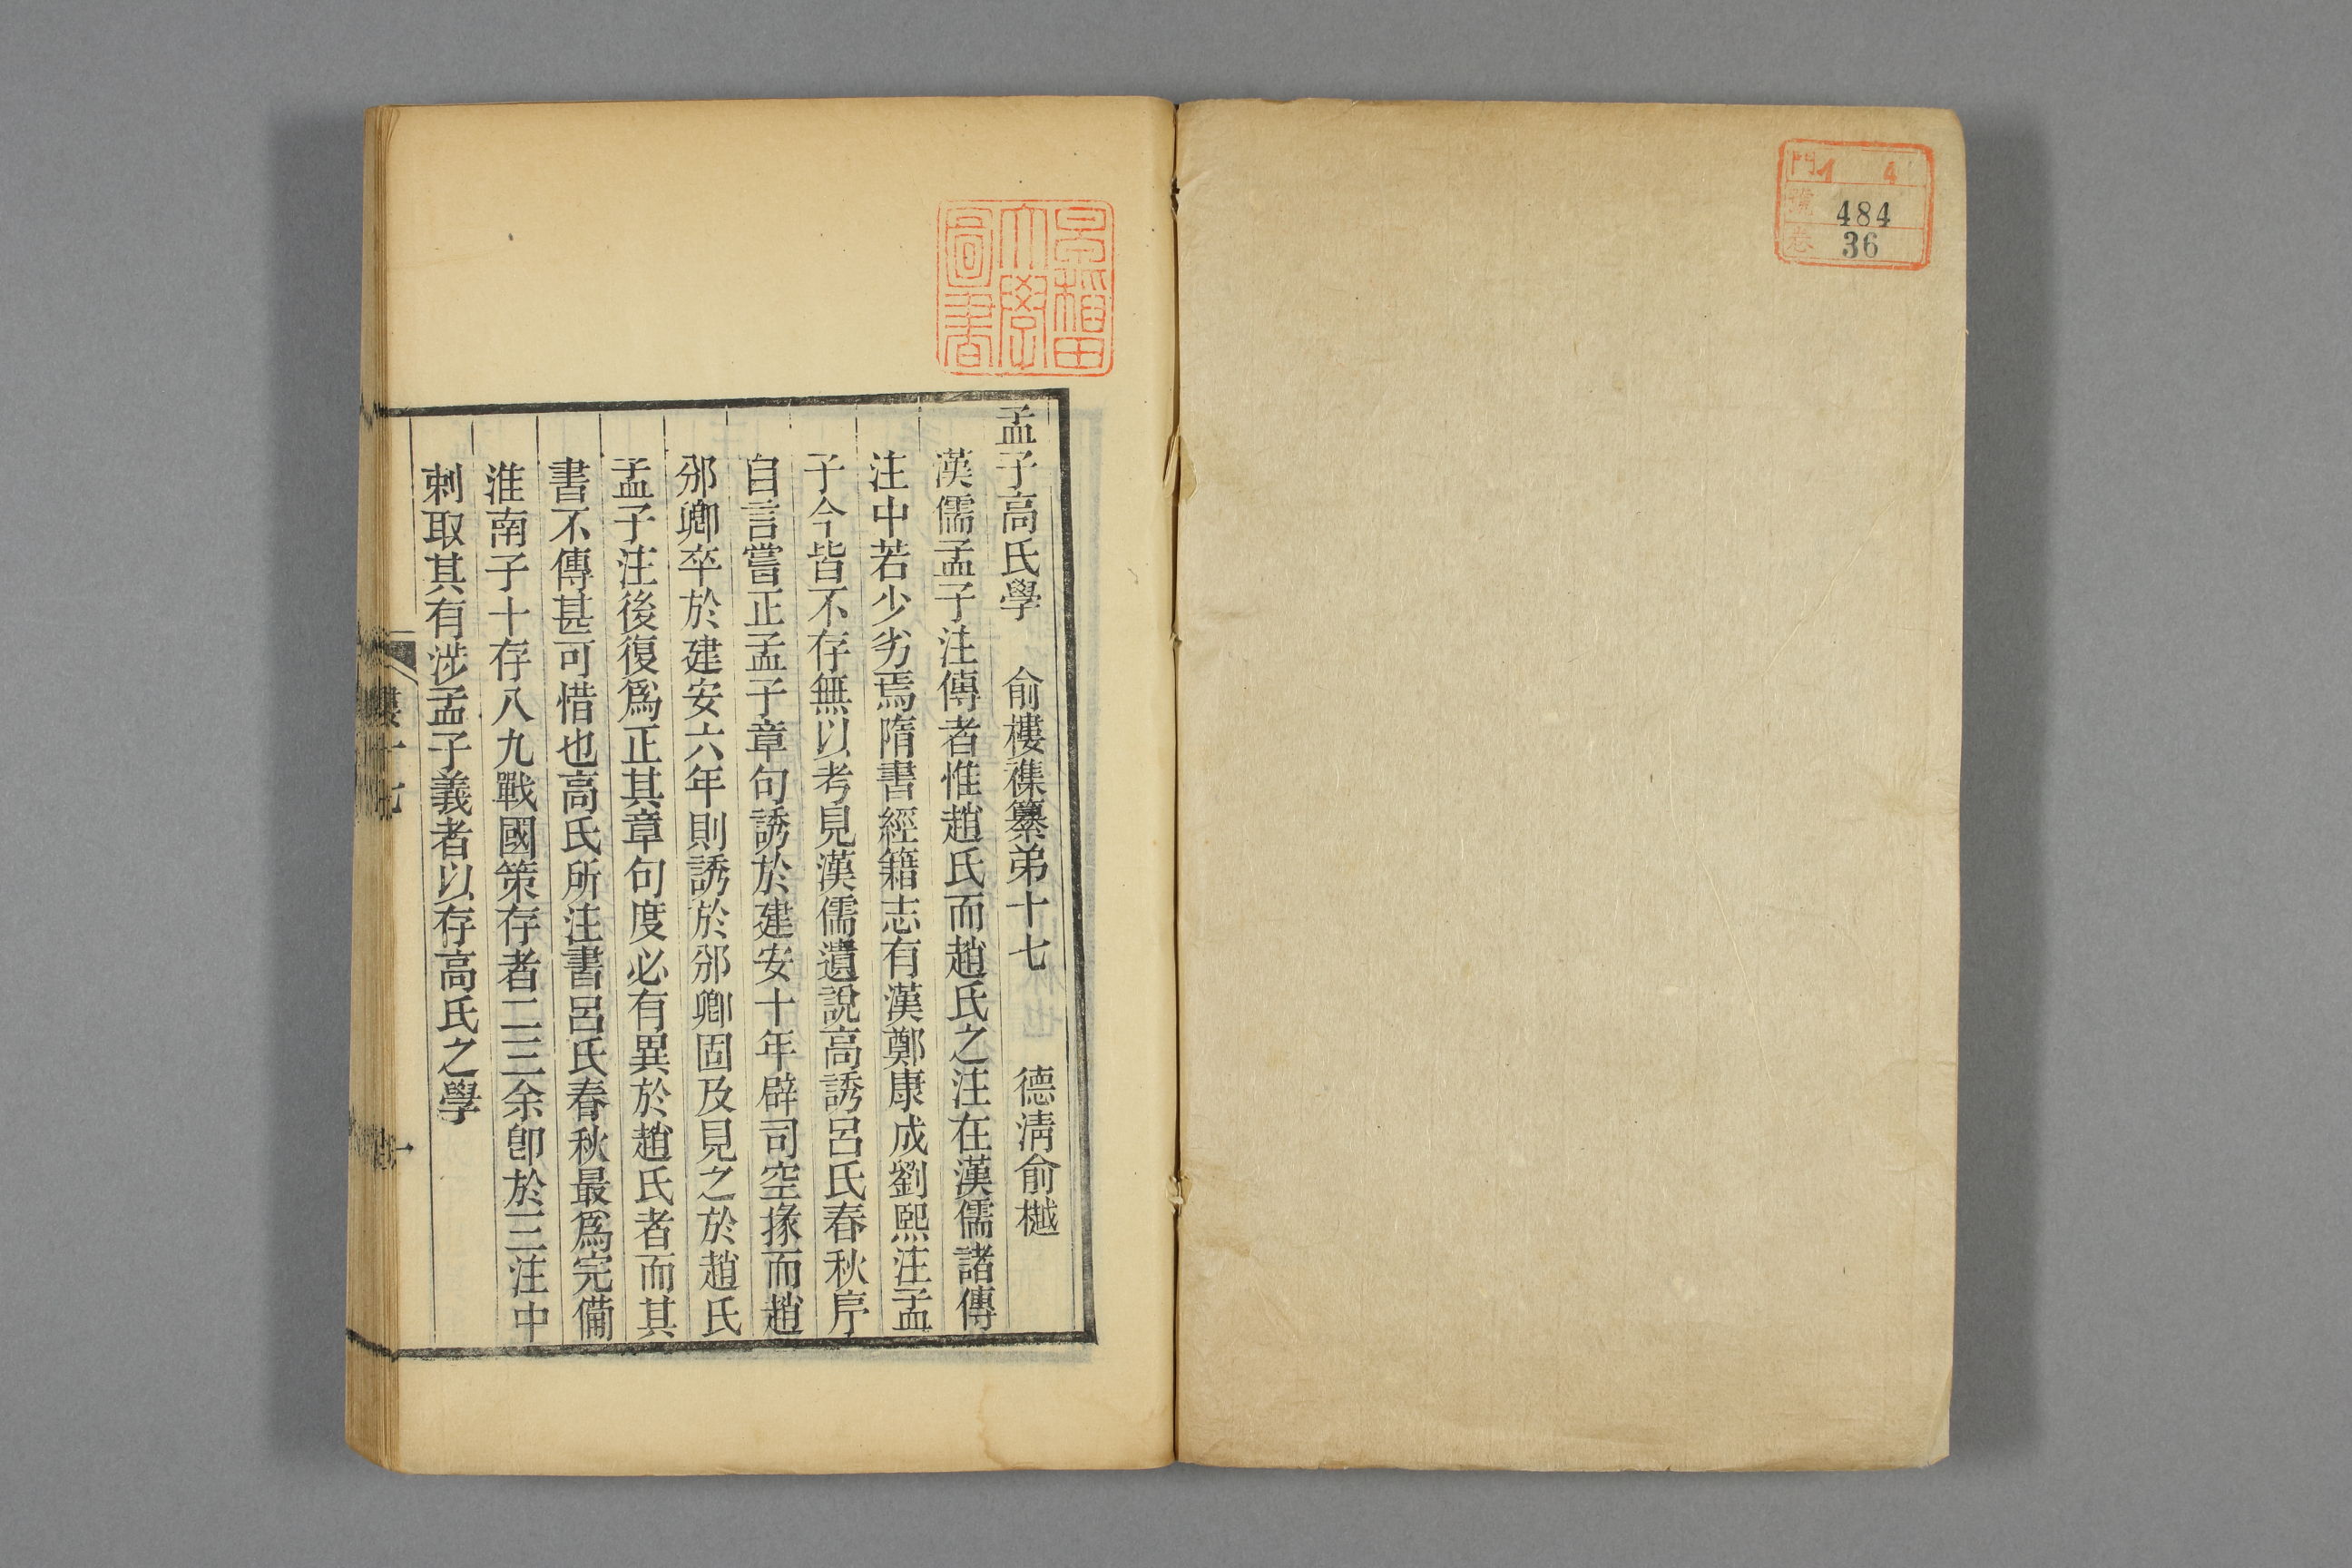 門 1 4
號 484
卷 36
早稻田
大學
圖書
孟子高氏學 俞樓襍纂弟十七 德淸俞樾
漢儒孟子注傳者惟趙氏而趙氏之注在漢儒諸傳
注中若少劣焉隋書經籍志有漢鄭康成劉熙注孟
子今皆不存無以考見漢儒遺說高誘呂氏春秋序
自言嘗正孟子章句誘於建安十年辟司空掾而趙
邠卿卒於建安六年則誘於邠卿固及見之於趙氏
孟子注後復爲正其章句度必有異於趙氏者而其
書不傳甚可惜也高氏所注書呂氏春秋最爲完備
淮南子十存八九戰國策存者二三余卽於三注中
刺取其有涉孟子義者以存高氏之學
樓十七
一